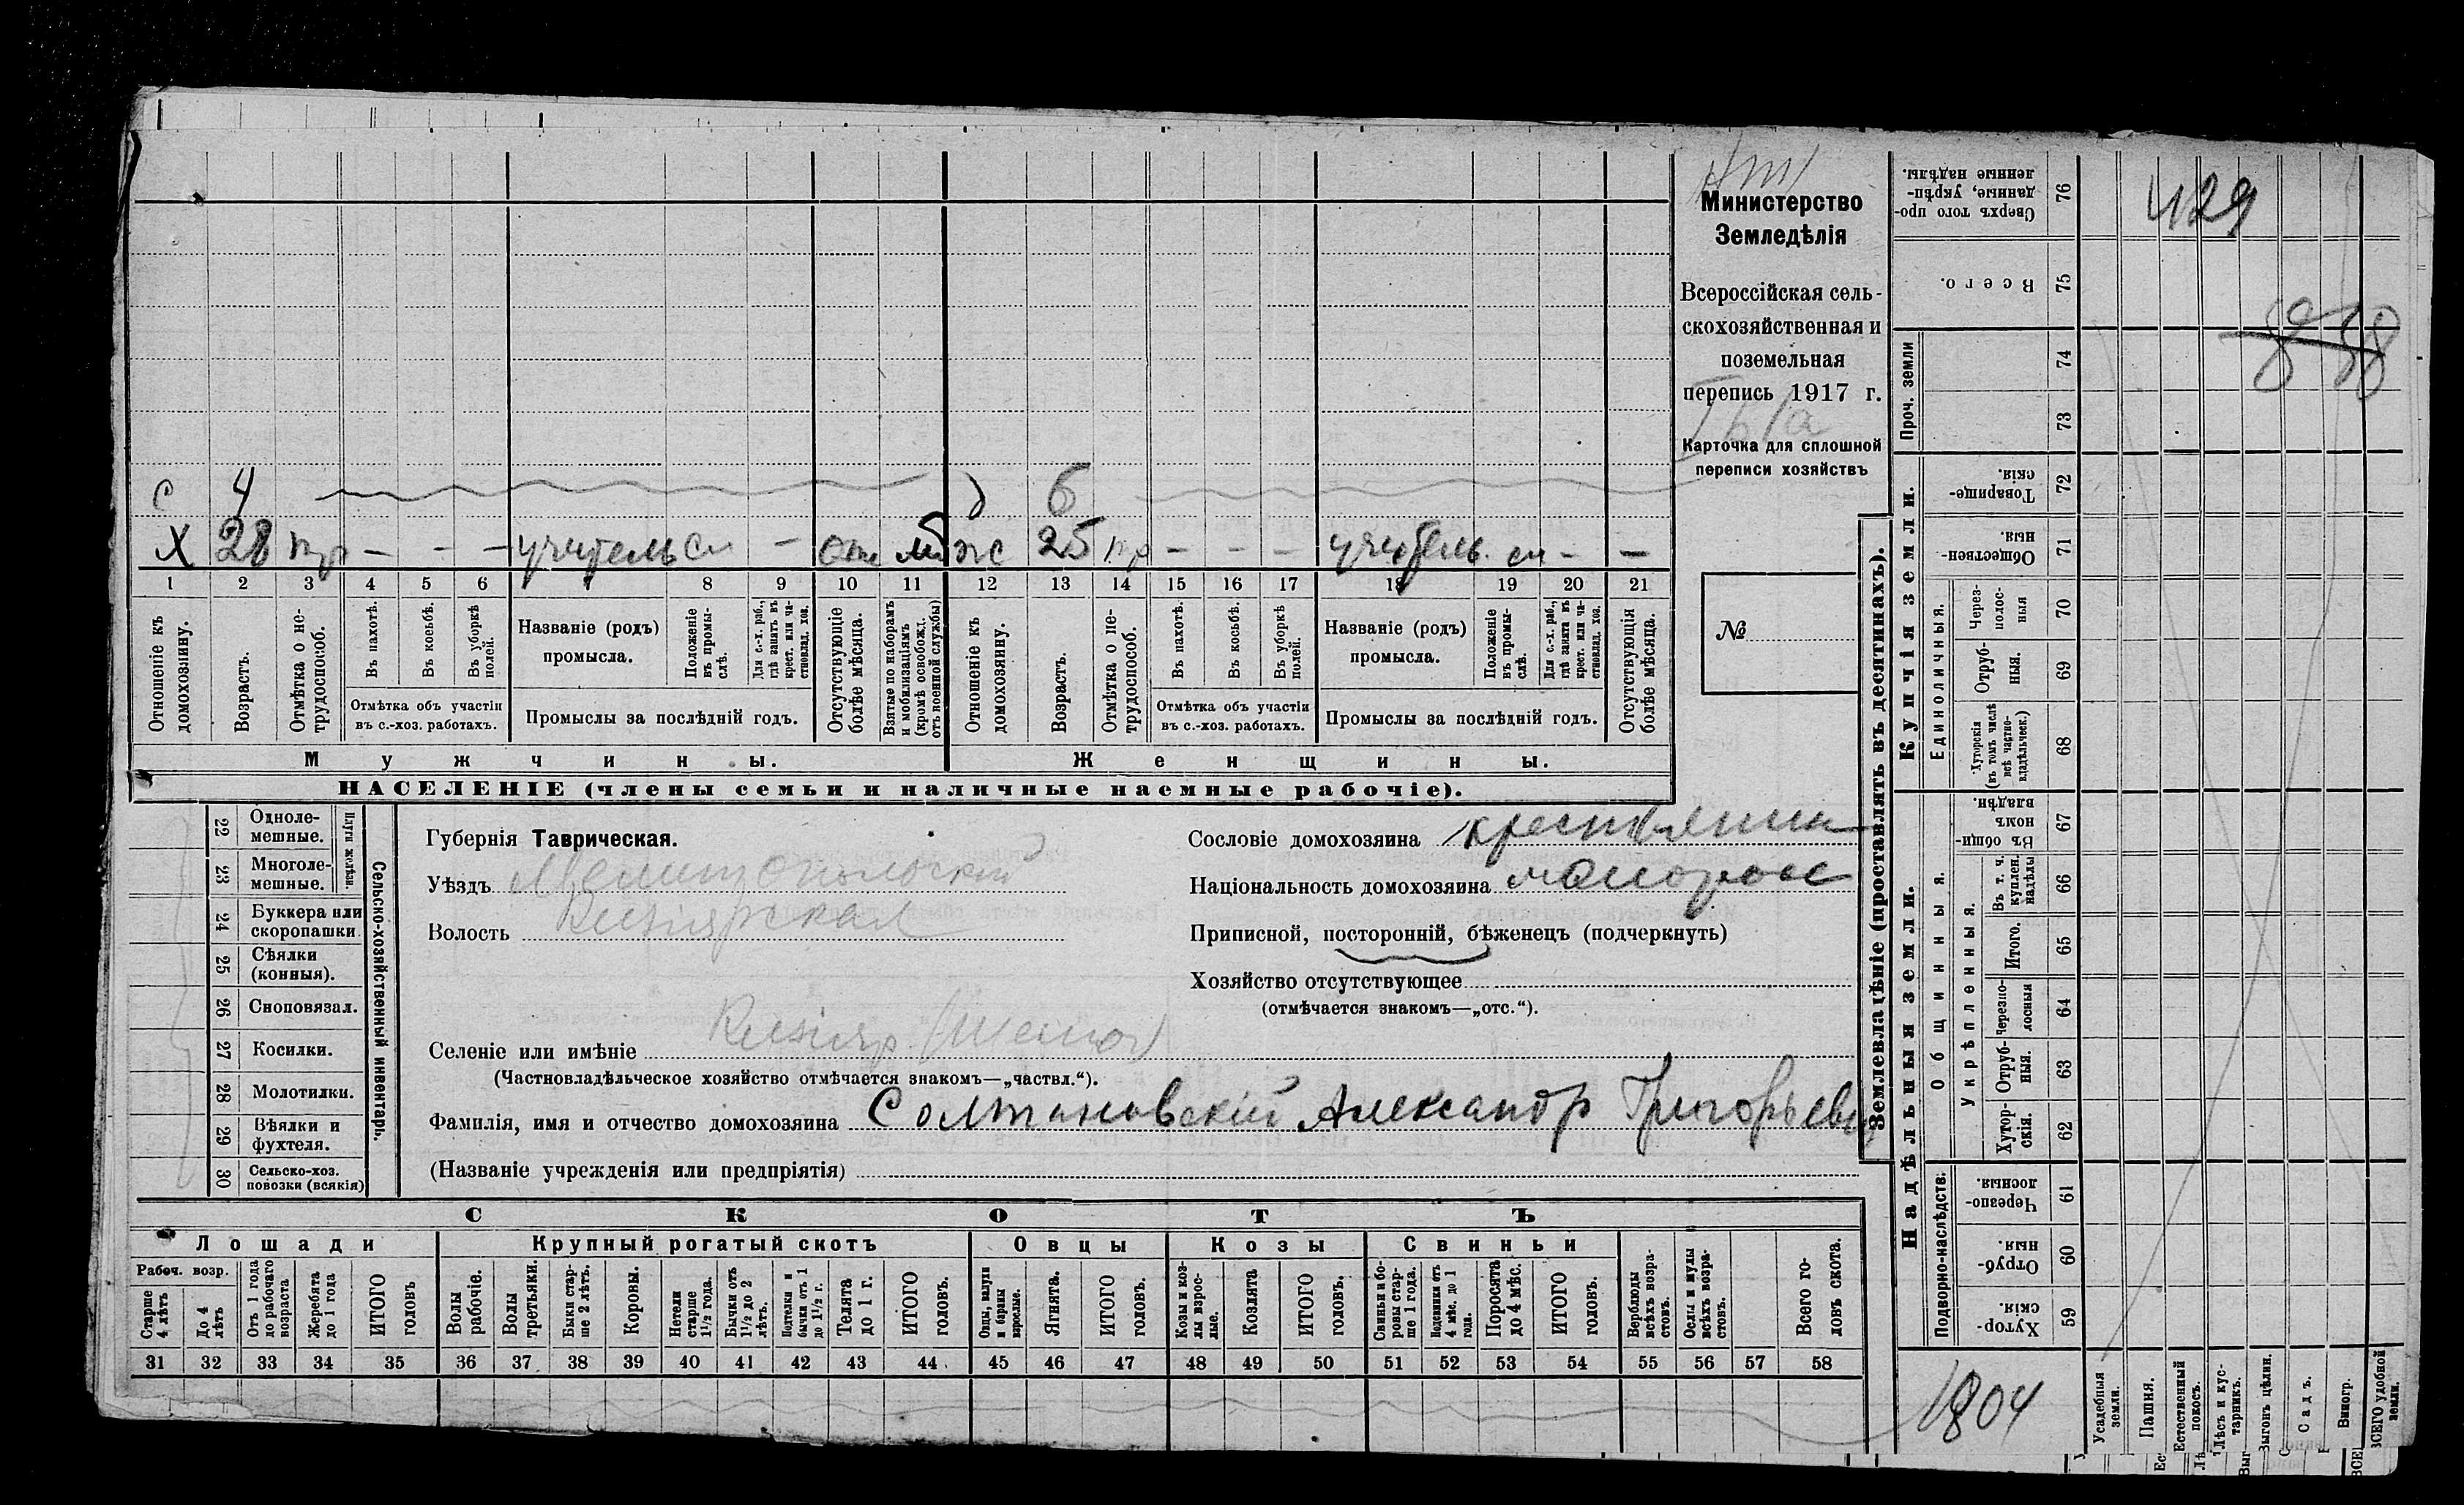 Министерство
Земледѣлія
Всероссійская сель-
скохозяйственная и
поземельная
перепись 1917 г.
Карточка для сплошной
переписи хозяйствъ
№
с 4 д 6
х 28 пр - - - учитель сл - отс мб ж 25 пр - - - учитель. сл - -
1 2 3 4 5 6 8 9 10 11 12 13 14 15 16 17 18 19 20 21
Отношеніе къ домохозяину.
Возрастъ.
Отмѣтка о не-трудоспособ.
Въ пахотѣ.
Въ косьбѣ.
Въ уборкѣ полей.
Отмѣтка объ участіи
въ с.-хоз. работахъ.
Названіе (родъ)
промысла.
Положеніе въ промы-слѣ.
Для с.-х. раб., гдѣ занятъ въ крест. или ча-стновлад. хоз.
Промыслы за послѣдній годъ.
Отсутствующіе болѣе мѣсяца.
Взятые по наборамъ и мобилизаціямъ (кромѣ освобожд. отъ военной службы)
Отношеніе къ домохозяину.
Возрастъ.
Отмѣтка о не-трудоспособ.
Въ пахотѣ.
Въ косьбѣ.
Въ уборкѣ полей.
Отмѣтка объ участіи
въ с.-хоз. работахъ.
Названіе (родъ)
промысла.
Положеніе въ промы-слѣ.
Для с.-х. раб., гдѣ занята въ крест. или ча-стновлад. хоз.
Промыслы за послѣдній годъ.
Отсутствующія болѣе мѣсяца.
Мужчины. Женщины.
НАСЕЛЕНІЕ (члены семьи и наличные наемные рабочіе).
22 Одноле-мешные.
23 Многоле-мешные.
Плуги желѣзн.
24 Буккера или скоропашки.
25 Сѣялки (конныя).
26 Сноповязал.
27 Косилки.
28 Молотилки.
29 Вѣялки и фухтеля.
30 Сельско-хоз. повозки (всякія)
Сельско-хозяйственный инвентарь.
Губернія Таврическая.
Уѣздъ Мелитопольскій
Волость Кизіярская
Сословіе домохозяина крестьянин
Національность домохозяина малоросс
Приписной, посторонній, бѣженецъ (подчеркнуть)
Хозяйство отсутствующее
(отмѣчается знакомъ—„отс.“).
Селеніе или имѣніе Кизіяр
(Частновладѣльческое хозяйство отмѣчается знакомъ—„частвл.“).
Фамилія, имя и отчество домохозяина Солтановскій Александр Григорьевич
(Названіе учрежденія или предпріятія)
СКОТЪ
Лошади Крупный рогатый скотъ Овцы Козы Свиньи
Рабоч. возр.
Старше 4 лѣтъ
До 4 лѣтъ
Отъ 1 года до рабочаго возраста
Жеребята до 1 года
ИТОГО головъ
Волы рабочіе.
Волы третьяки.
Быки стар-ше 2 лѣтъ.
Коровы.
Нетели старше 1½ года.
Бычки отъ 1½ до 2 лѣтъ.
Подтелки и бычки отъ 1 до 1½ г.
Телята до 1 г.
ИТОГО головъ.
Овцы, валухи и бараны взрослые.
Ягнята.
ИТОГО головъ.
Козы и коз-лы взрос-лые.
Козлята
ИТОГО головъ.
Свиньи и бо-ровы стар-ше 1 года.
Подсвинки отъ 4 мѣс. до 1 года.
Поросята до 4 мѣс.
ИТОГО головъ.
Верблюды всѣхъ возра-стовъ.
Ослы и мулы всѣхъ возра-стовъ.
Всего го-ловъ скота.
31 32 33 34 35 36 37 38 39 40 41 42 43 44 45 46 47 48 49 50 51 52 53 54 55 56 57 58
Землевладѣніе (проставлять въ десятинахъ).
Купчія земли.
Надѣльныя земли.
Сверхъ того про-данные, укрѣп-ленные надѣлы. 76
Всего. 75
Проч. земли 74
73
Товарище-скія. 72
Обществен-ныя. 71
Единоличныя.
Через-полос-ныя 70
Отруб-ныя. 69
Хуторскія (въ томъ числѣ всѣ частно-владѣльческ.) 68
Въ общи-номъ владѣн. 67
Общинныя.
Укрѣпленныя.
Въ т. ч. куплен. надѣлы 66
Итого. 65
Черезпо-лосныя 64
Отруб-ныя. 63
Хутор-скія. 62
Подворно-наслѣдств:
Черезпо-лосныя. 61
Отруб-ныя. 60
Хутор-скія. 59
429
1804
Усадебныя земли.
Пашня.
Естественный покосъ.
Лѣсъ и кус-тарникъ.
Выгонъ цѣлин.
Садъ.
Виногр.
ВСЕГО удобной земли.